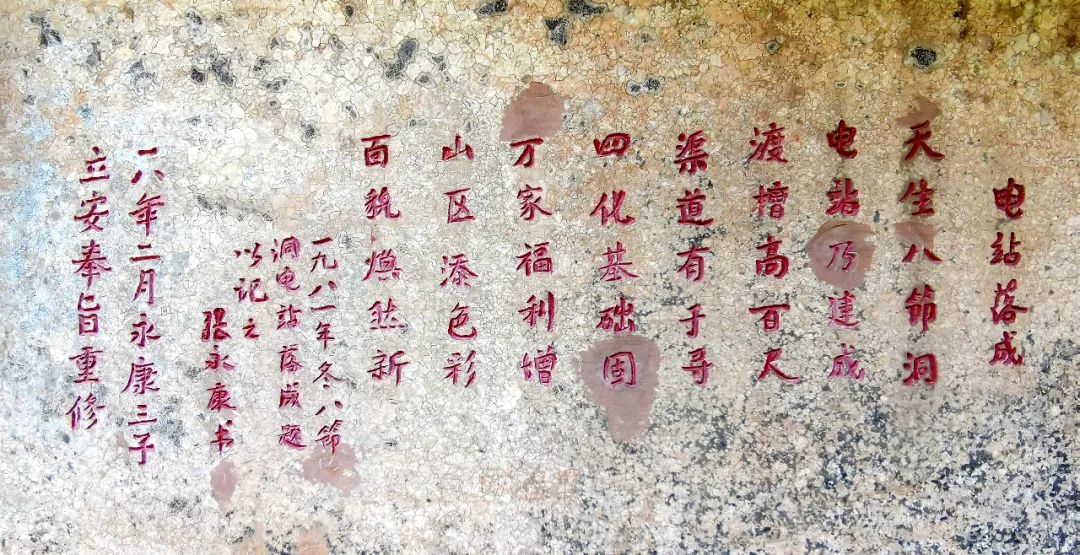 电站落成
天生八节洞
电站乃建成
渡槽高百尺
渠道有千寻
四化基础固
万家福利增
山区添色彩
面貌焕然新
一九八一年冬八节
洞电站落成题
以记之
张永康书
一八年二月永康三子
立安奉旨重修